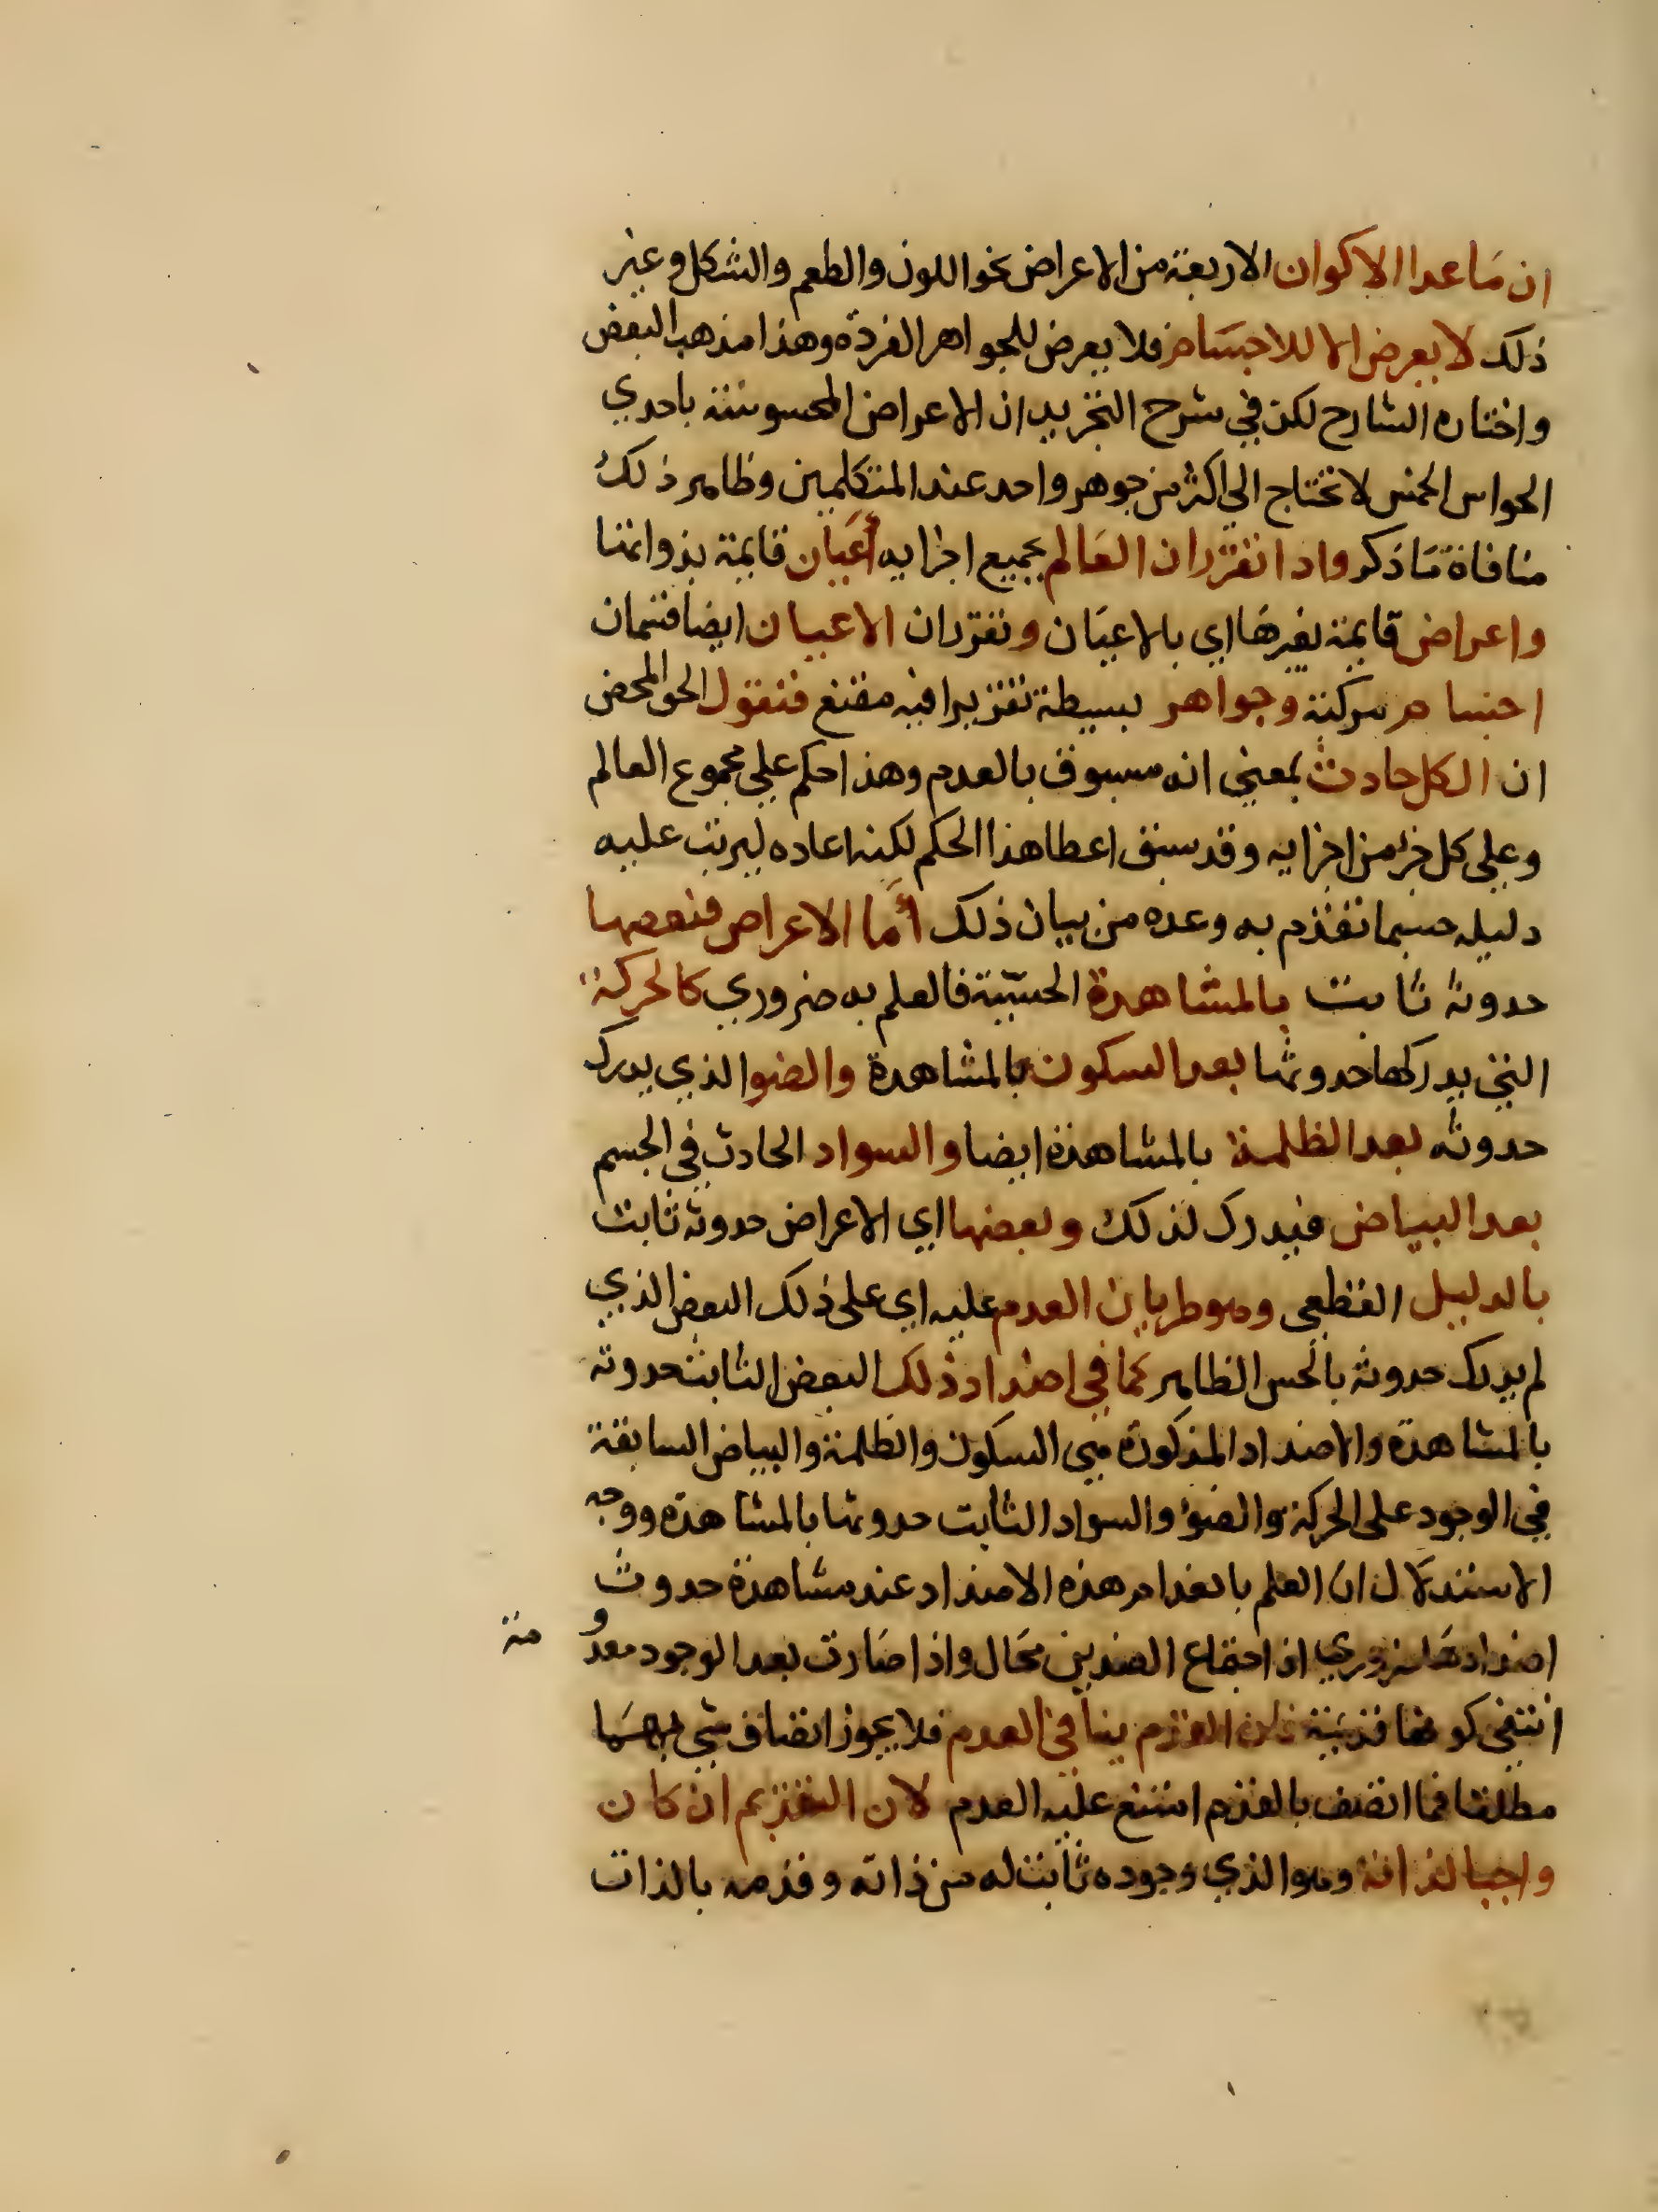 ان ما عدا الاكوان الاربعة من الاعراض نحو اللون والطعم والشكل وغير
ذلك لا يعرض الا للاجسام فلا يعرض للجواهر الفردة وهذا مذهب البعض
واختاره الشارح لكن في شرح التجريد ان الاعراض المحسوسة باحدي
الحواس الخمس لا تحتاج الي اكثر من جوهر واحد عند المتكلمين وظاهر ذلك
منافاة ما ذكر واذا تقرر ان العالم بجميع اجزايه أعيان قايمة بذواتها
واعراض قايمة بغيرها اي بالاعيان وتقرر ان الاعيان ايضا قسمان
اجسام مركبة وجواهر بسيطة تقريرا فيه مقنع فنقول الحق المحض
ان الكل حادث بمعني انه مسبوق بالعدم وهذا حكم علي مجموع العالم
وعلي كل جزء من اجزايه وقد سبق اعطا هذا الحكم لكنه اعاده ليرتب عليه
دليله حسبما تقدم به وعده من بيان ذلك أما الاعراض فبعضها
حدوثه ثابت بالمشاهدة الحسّيّة فالعلم به ضروري كالحركة
التي يدركها حدوثها بعد السكون بالمشاهدة والضو الذي يدرك
حدوثه بعد الظلمة بالمشاهدة ايضا والسواد الحادث في الجسم
بعد البياض فيدرك لذلك وبعضها اي الاعراض حدوثه ثابت
بالدليل القطعي وهو طريان العدم عليه اي على ذلك البعض الذي
لم يدرك حدوثه بالحس الظاهر كما في اضداد ذلك البعض الثابت حدوثه
بالمشاهدة والاضداد المذكورة هي السكون والظلمة والبياض السابقة
في الوجود على الحركة والضوء والسواد الثابت حدوثها بالمشاهدة ووجه
الاستدلال ان العلم بانعدام هذه الاضداد عند مشاهدة حدوث
اضدادها ضروري اذ اجتماع الضدين محال واذا صارت بعد الوجود معدو مة
انتفي كونها قديمة فان القدم ينافي العدم فلا يجوز اتصاف شي بهما
مطلقا فما اتصف بالقدم امتنع عليه العدم لان القديم ان كان
واجبا لذاته وهو الذي وجوده ثابت له من ذاته وقدمه بالذات